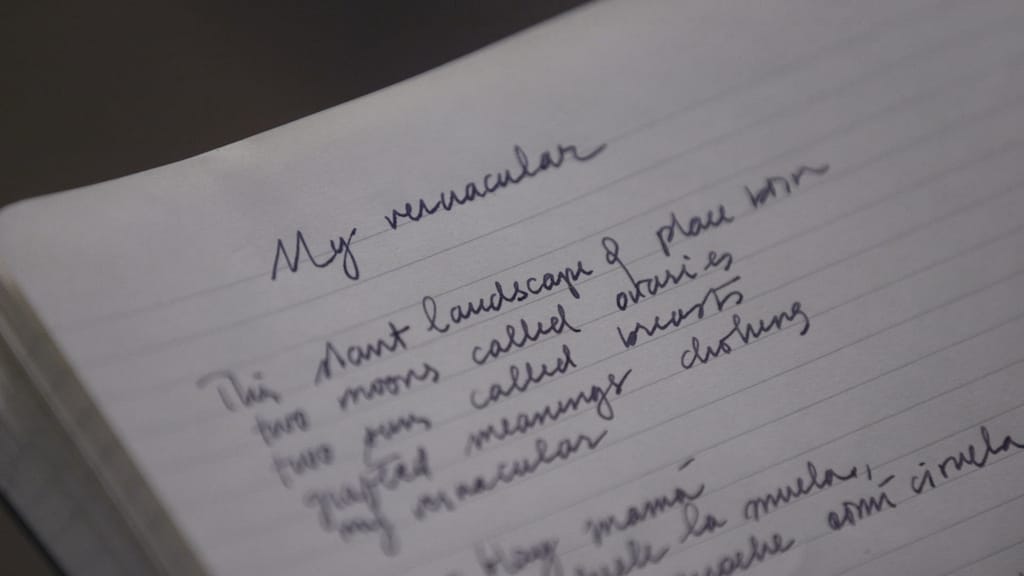 My vernacular
This slant landscape & place
two moons called ovaries
two suns called breasts
grafted meanings clothing
my vernacular
Hoy mamá
duele la muela,
comí ciruela